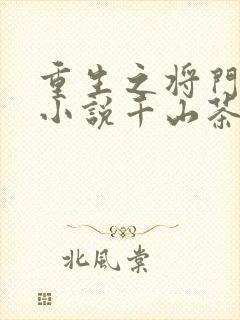 重生之将門
小説千山茶
北風棠